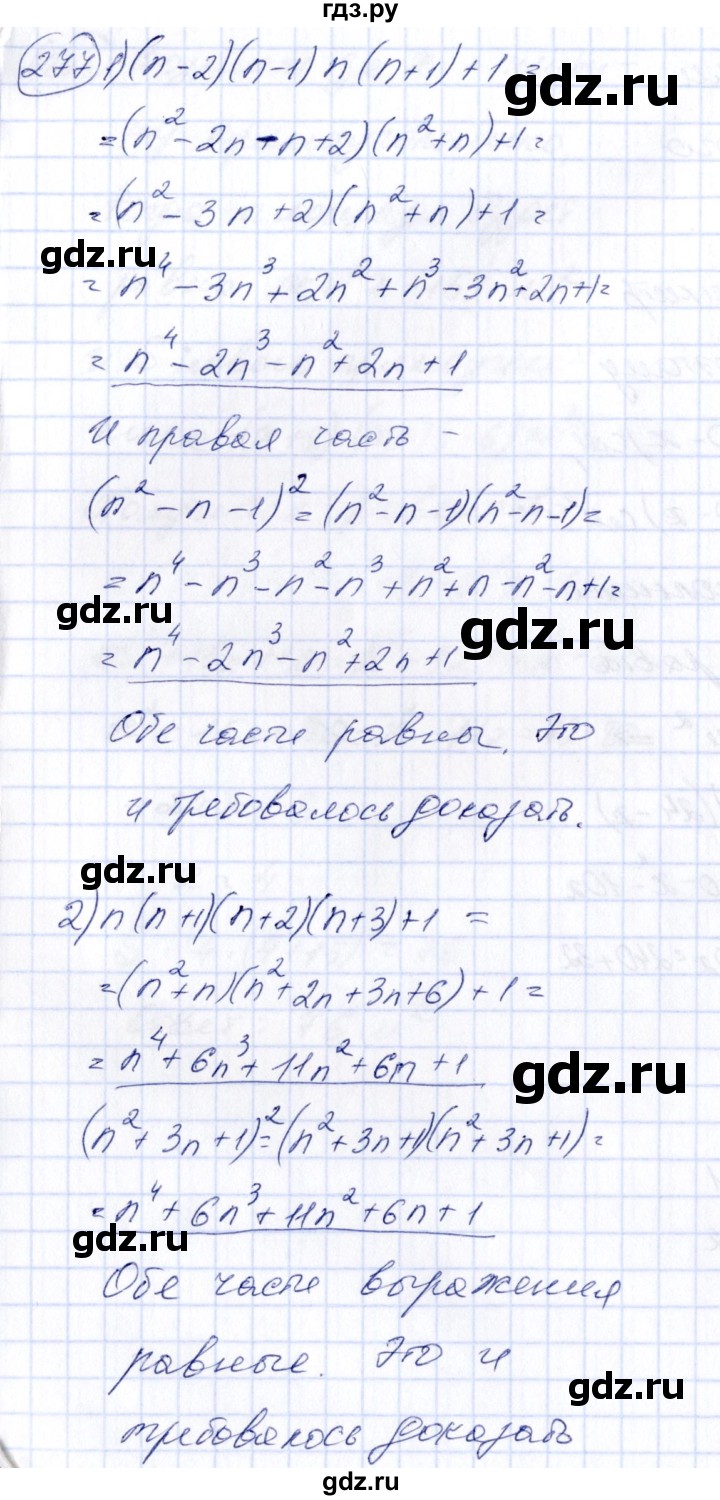 гдз.ру
277 1) (n-2)(n-1)n(n+1)+1=
=(n²-2n-n+2)(n²+n)+1=
=(n²-3n+2)(n²+n)+1=
gdz.ru
=n⁴-3n³+2n²+n³-3n²+2n+1=
=n⁴-2n³-n²+2n+1
И правая часть -
(n²-n-1)²=(n²-n-1)(n²-n-1)=
=n⁴-n³-n²-n³+n²+n-n²-n+1=
gdz.ru
gdz.ru
=n⁴-2n³-n²+2n+1
Обе части равны. Это
и требовалось доказать.
gdz.ru
2) n(n+1)(n+2)(n+3)+1=
=(n²+n)(n²+2n+3n+6)+1=
=n⁴+6n³+11n²+6n+1
gdz.ru
(n²+3n+1)²=(n²+3n+1)(n²+3n+1)=
=n⁴+6n³+11n²+6n+1
gdz.ru
Обе части выражения
равные. Это и
gdz.ru
требовалось доказать
gdz.ru